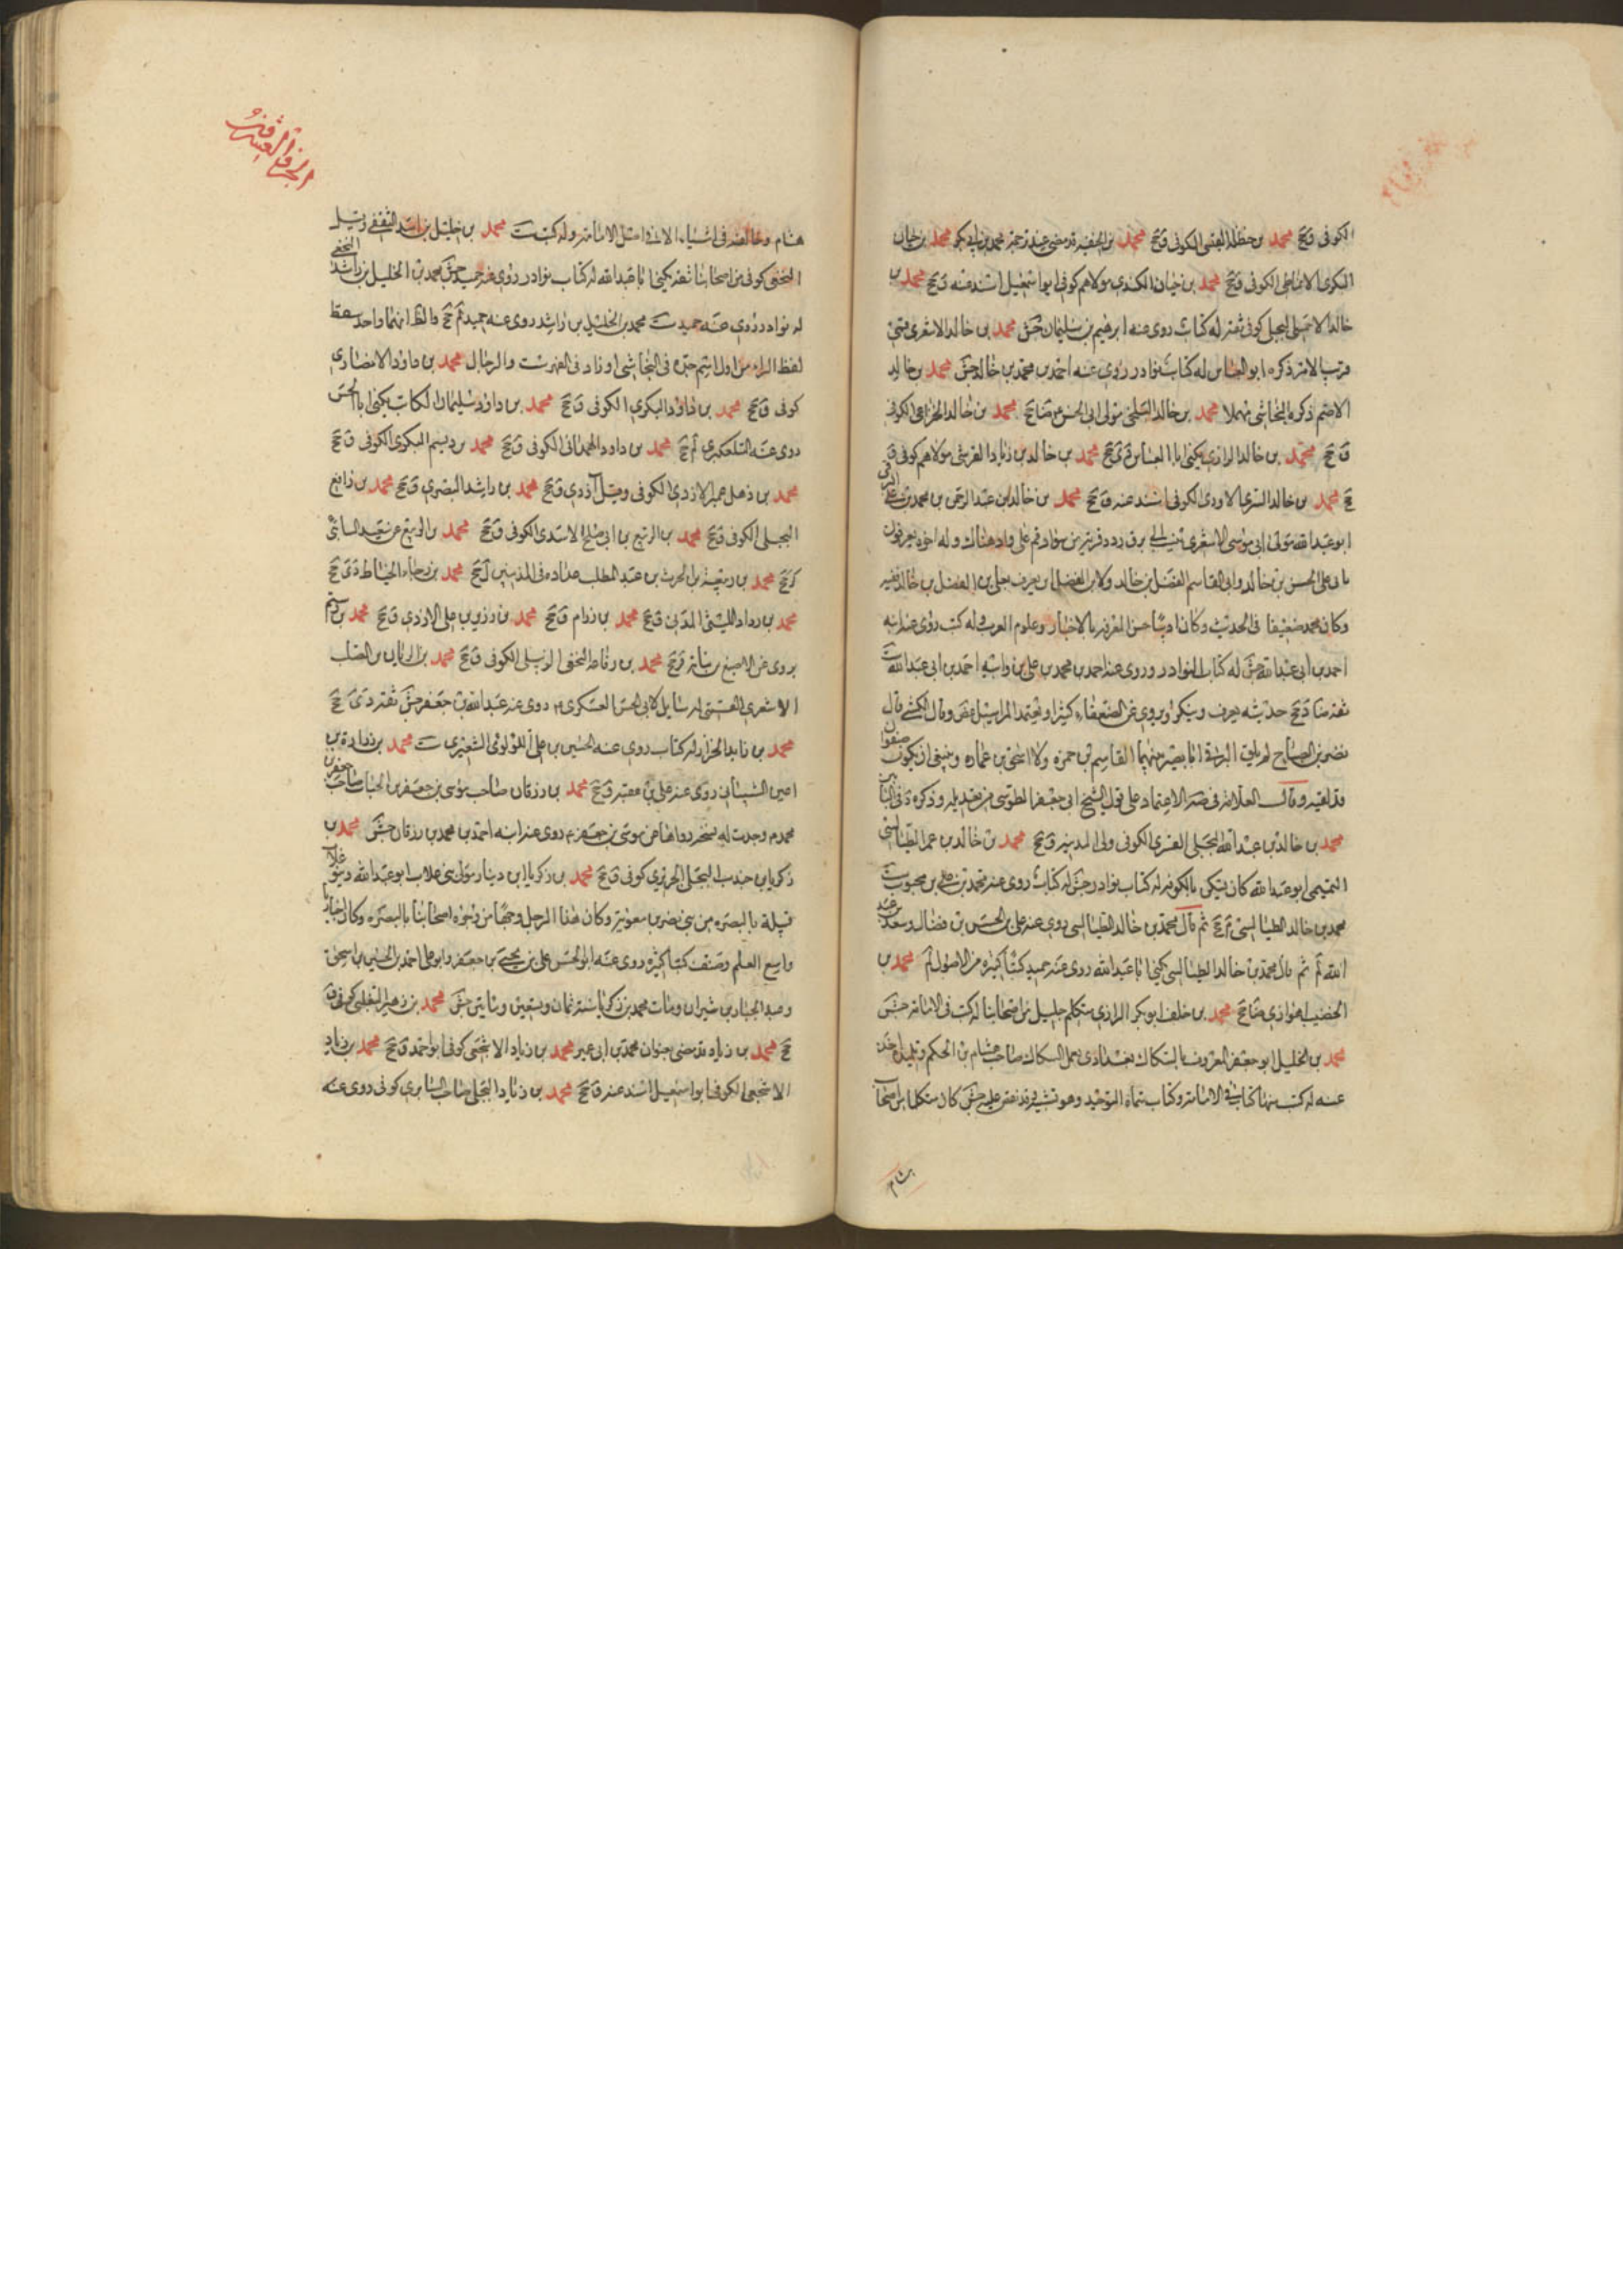 الكوفى ق جخ محمد بن حنظلة القيسى الكوفى ق جخ محمد بن الحنفيه قد مضى عند ترجمة محمد بن ابى بكر محمد بن حيان
البكرى الانماطى الكوفى ق جخ محمد بن حيان الكندى مولاهم كوفى ابو اسمعيل اسند عنه ق جخ محمد بن
خالد الاحمسى البجلى كوفى ثقة له كتاب روى عنه ابرهيم بن سليمان جش محمد بن خالد الاشعرى قمى
قريب الامر ذكره ابو العباس له كتاب نوادر روى عنه احمد بن محمد بن خالد جش محمد بن خالد
الاصم ذكره النجاشى مهملا محمد بن خالد البلخى مولى ابى الحسن ع ضا جخ محمد بن خالد الخزاعى الكوفى
ق جخ محمد بن خالد الرازى يكنى ابا العباس جخ محمد بن خالد بن زياد القرشى مولاهم كوفى ق
جخ محمد بن خالد السرى الاودى الكوفى اسند عنه ق جخ محمد بن خالد بن عبد الرحمن بن محمد بن على البرقى
ابو عبد الله مولى ابى موسى الاشعرى ينسب الى برق رود قرية من سواد قم على واد هناك وله اخوة يعرفون
بابى على الحسن بن خالد وابى القاسم الفضل بن خالد ولابن الفضل ابن يعرف بعلى بن العلا بن الفضل بن خالد فقيه
وكان محمد ضعيفا فى الحديث وكان اديبا حسن المعرفه بالاخبار وعلوم العرب وله كتب روى عنه ابنه
احمد بن ابى عبد الله جش له كتاب النوادر وروى عنه احمد بن محمد بن على بن احمد بن ابى عبد الله ست
ثقة ضا د جخ حديثه يعرف وينكر ويروى عن الضعفاء كثيرا ويعتمد المراسيل غض وقال الكشى قال
نصر بن الصباح لم يلق البرقى ابا بصير بينهما القاسم بن حمزه ولا اسحق بن عماره وينبغى ان يكون صفوان
قد لقيه وقال العلامة فى صه الاعتماد على قول الشيخ ابى جعفر الطوسى من تعديله وذكره د فى البابين
محمد بن خالد بن عبد الله البجلى القسرى الكوفى ولى المدينه ق جخ محمد بن خالد بن عمر الطيالسى
التميمى ابو عبد الله كان يسكن بالكوفه له كتاب نوادر جش له كتاب روى عنه محمد بن على بن محبوب ست
محمد بن خالد الطيالسى جخ ثم قال محمد بن خالد الطيالسى روى عنه على بن الحسن بن فضال وسعد بن عبد
الله لم ثم قال محمد بن خالد الطيالسى يكنى ابا عبد الله روى عنه حميد كتبا كثيره من الاصول لم محمد بن
الخضيب اهوازى ضا جخ محمد بن خلف ابو بكر الرازى متكلم جليل من اصحابنا له كتب فى الامامة جش
محمد بن الخليل ابو جعفر المعروف بالسكاك بغدادى يعمل السكاك صاحب هشام بن الحكم وتلميذه اخذ
عنه له كتب منها كتاب فى الامامة وكتاب سماه التوحيد وهو تشبيه وقد نقض عليه جش كان متكلما من اصحاب
هشام
هشام وخالفه فى اشياء الا فى اصل الامامة وله كتب ست محمد بن خليل بن اسد الثقفى وقيل
النخعى كوفى من اصحابنا ثقة يكنى ابا عبد الله له كتاب نوادر روى عنه حميد جش محمد بن الخليل بن راشد النخعى
له نوادر روى عنه حميد ست محمد بن الخليل بن راشد روى عنه حميد لم جخ والظ انهما واحد سقط
لفظ الراء من اول اسم جده فى النجاشى او زاد فى الفهرست والرجال محمد بن داود الانصارى
كوفى ق جخ محمد بن داود البكرى الكوفى ق جخ محمد بن داود بن سليمان الكاتب يكنى ابا الحسن
روى عنه التلعكبرى لم جخ محمد بن داود الهمدانى الكوفى ق جخ محمد بن ديسم البكرى الكوفى ق جخ
محمد بن ذهل الازدى الكوفى وقيل ازدى ق جخ محمد بن راشد البصرى ق جخ محمد بن رافع
البجلى الكوفى ق جخ محمد بن الربيع بن ابى صالح الاسدى الكوفى ق جخ محمد بن الربيع بن
جخ محمد بن ربيعة بن الحرث بن عبد المطلب عداده فى المدنيين ل جخ محمد بن رجاء الخياط دى جخ
محمد بن رواد الليثى المدنى ق جخ محمد بن رزام ق جخ محمد بن رزين بن على الازدى ق جخ محمد بن رستم
يروى عن الاصبغ بن نباتة جخ محمد بن رفاعة النخعى الكوفى ق جخ محمد بن الريان بن الصلت
الاشعرى القمى له مسايل لابى الحسن العسكرى ع روى عنه عبد الله بن جعفر جش ثقة دى جخ
محمد بن زايد الخزاز له كتاب روى عنه الحسين بن على اللؤلؤى الشعيرى ست محمد بن زرارة بن
اعين الشيبانى روى عنه على بن عقبه ق جخ محمد بن زرقان صاحب موسى بن جعفر بن الحباب صاحب جعفر بن
محمد ع وجدت له نسخه رواها عن موسى بن جعفر ع روى عنه ابنه احمد بن محمد بن زرقان جش محمد بن
زكريا بن جندب البجلى الجريرى كوفى ق جخ محمد بن زكريا بن دينار مولى بنى غلاب ابو عبد الله وبنو غلاب
قبيلة بالبصره من بنى نصر بن معويه وكان هذا الرجل وجها من وجوه اصحابنا بالبصره وكان اخباريا
واسع العلم وصنف كتبا كثيره روى عنه ابو الحسن على بن يحيى بن جعفر وابو على احمد بن الحسين بن اسحق
وعبد الجبار بن شيران ومات محمد بن زكريا سنه ثمان وتسعين ومايتين جش محمد بن زهير التغلبى كوفى ق
جخ محمد بن زياد قد مضى بعنوان محمد بن ابى عمير محمد بن زياد الاشجعى كوفى ابو احمد ق جخ محمد بن زياد
الاشجعى الكوفى ابو اسمعيل اسند عنه ق جخ محمد بن زياد البجلى صاحب السابرى كوفى روى عنه